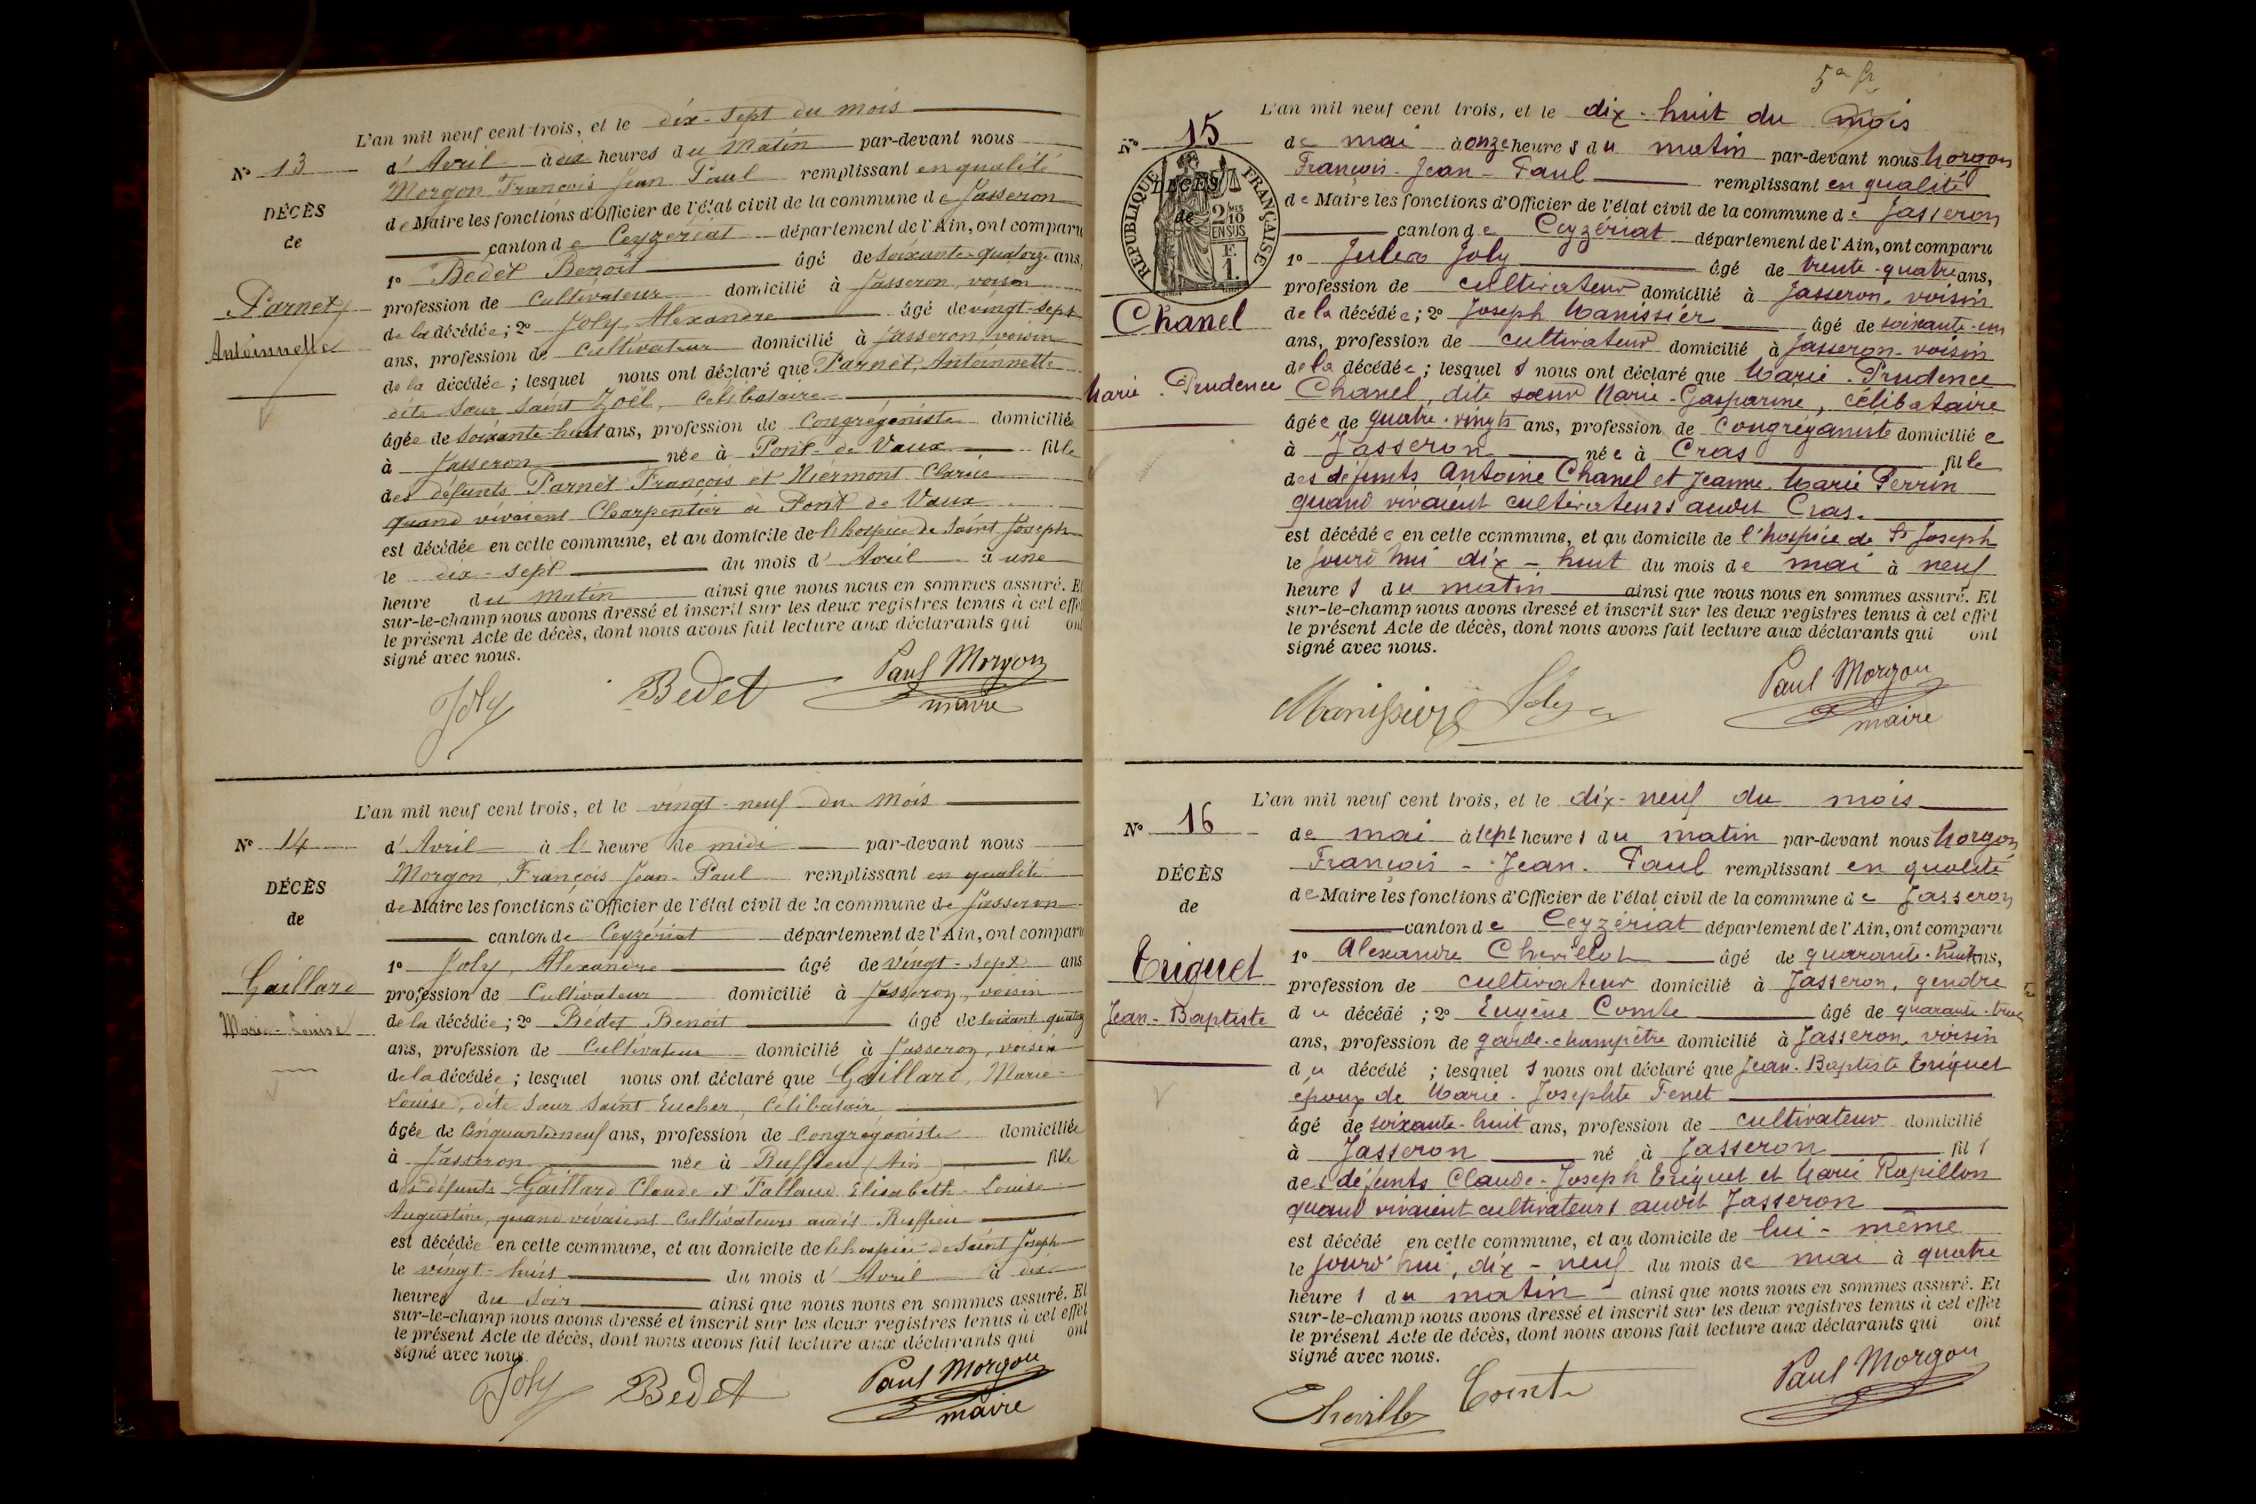 L'an mil neuf cent trois, et le dix-sept du mois
N° 13
d'Avril à dix heures du Matin par-devant nous
Morgon François Jean Paul remplissant en qualité
DÉCÈS
de Maire les fonctions d'Officier de l'état civil de la commune de Jasseron
de
canton de Ceyzériat département de l'Ain, ont comparu
1° Bedet Benoît âgé de soixante-quatorze ans,
Parnet
profession de Cultivateur domicilié à Jasseron, voisin
de la décédée; 2° Joly, Alexandre âgé de vingt-sept
Antoinnette
ans, profession de Cultivateur domicilié à Jasseron, voisin
de la décédée; lesquel nous ont déclaré que Parnet, Antoinnette
dite Sœur Saint Zoël, Célibataire
âgée de soixante-huit ans, profession de Congréganiste domiciliée
à Jasseron née à Pont-de-Vaux fille
des défunts Parnet François et Niermont Clarie
quand vivaient Charpentier à Pont de Vaux
est décédée en cette commune, et au domicile de l'hospice de Saint Joseph
le dix-sept du mois d'Avril à une
heure du matin ainsi que nous nous en sommes assuré. Et
sur-le-champ nous avons dressé et inscrit sur les deux registres tenus à cet effet
le présent Acte de décès, dont nous avons fait lecture aux déclarants qui ont
signé avec nous.
Joly Bedet Paul Morgon
maire
L'an mil neuf cent trois, et le vingt-neuf du mois
N° 14
d'Avril à l' heure de midi par-devant nous
Morgon, François Jean-Paul remplissant en qualité
DÉCÈS
de Maire les fonctions d'Officier de l'état civil de la commune de Jasseron
de
canton de Ceyzériat département de l'Ain, ont comparu
1° Joly, Alexandre âgé de vingt-sept ans
Gaillard
profession de Cultivateur domicilié à Jasseron, voisin
Marie-Louise
de la décédée; 2° Bedet Benoît âgé de soixant-quatorz
ans, profession de Cultivateur domicilié à Jasseron, voisin
de la décédée; lesquel nous ont déclaré que Gaillard, Marie-
Louise, dite Sœur Saint Eucher, Célibataire
âgée de Cinquante neuf ans, profession de Congréganiste domiciliée
à Jasseron née à Ruffieu (Ain) fille
des défunts Gaillard Claude et Falland Elisabeth-Louise
Augustine, quand vivaient Cultivateurs audit Ruffieu
est décédée en cette commune, et au domicile de l'hospice de Saint Joseph
le vingt-huit du mois d'Avril à dix
heures du soir ainsi que nous nous en sommes assuré. Et
sur-le-champ nous avons dressé et inscrit sur les deux registres tenus à cet effet
le présent Acte de décès, dont nous avons fait lecture aux déclarants qui ont
signé avec nous
Joly Bedet Paul Morgon
maire
L'an mil neuf cent trois, et le dix-huit du mois
N° 15
de mai à onze heures du matin par-devant nous Morgon
François-Jean-Paul remplissant en qualité
RÉPUBLIQUE FRANÇAISE
2/10 EN SUS
F. 1.
DÉCÈS
de
de Maire les fonctions d'Officier de l'état civil de la commune de Jasseron
canton de Ceyzériat département de l'Ain, ont comparu
1° Jules Joly âgé de trente-quatre ans,
profession de cultivateur domicilié à Jasseron, voisin
Chanel
de la décédée; 2° Joseph Manissier âgé de soixante-un
ans, profession de cultivateur domicilié à Jasseron-voisin
de la décédée; lesquels nous ont déclaré que Marie-Prudence
Marie-Prudence
Chanel, dite sœur Marie-Gasparine, célibataire
âgée de quatre-vingts ans, profession de congréganiste domiciliée
à Jasseron née à Cras fille
des défunts Antoine Chanel et Jeanne-Marie Perrin
quand vivaient cultivateurs audit Cras.
est décédée en cette commune, et au domicile de l'hospice de St Joseph
le jourd'hui dix-huit du mois de mai à neuf
heures du matin ainsi que nous nous en sommes assuré. Et
sur-le-champ nous avons dressé et inscrit sur les deux registres tenus à cet effet
le présent Acte de décès, dont nous avons fait lecture aux déclarants qui ont
signé avec nous.
Manissier Joly Paul Morgon
maire
L'an mil neuf cent trois, et le dix-neuf du mois
N° 16
de mai à sept heures du matin par-devant nous Morgon
François-Jean-Paul remplissant en qualité
DÉCÈS
de Maire les fonctions d'Officier de l'état civil de la commune de Jasseron
de
canton de Ceyzériat département de l'Ain, ont comparu
1° Alexandre Chevillot âgé de quarante-huit ans,
Triquet
profession de cultivateur domicilié à Jasseron, gendre
Jean-Baptiste
du décédé; 2° Eugène Comte âgé de quarante-trois
ans, profession de garde-champêtre domicilié à Jasseron, voisin
du décédé; lesquels nous ont déclaré que Jean-Baptiste Triquet
époux de Marie-Josephte Fenet
âgé de soixante-huit ans, profession de cultivateur domicilié
à Jasseron né à Jasseron fils
des défunts Claude-Joseph Triquet et Marie Rapillon
quand vivaient cultivateurs audit Jasseron
est décédé en cette commune, et au domicile de lui-même
le jourd'hui, dix-neuf du mois de mai à quatre
heures du matin ainsi que nous nous en sommes assuré. Et
sur-le-champ nous avons dressé et inscrit sur les deux registres tenus à cet effet
le présent Acte de décès, dont nous avons fait lecture aux déclarants qui ont
signé avec nous.
Comte Paul Morgon